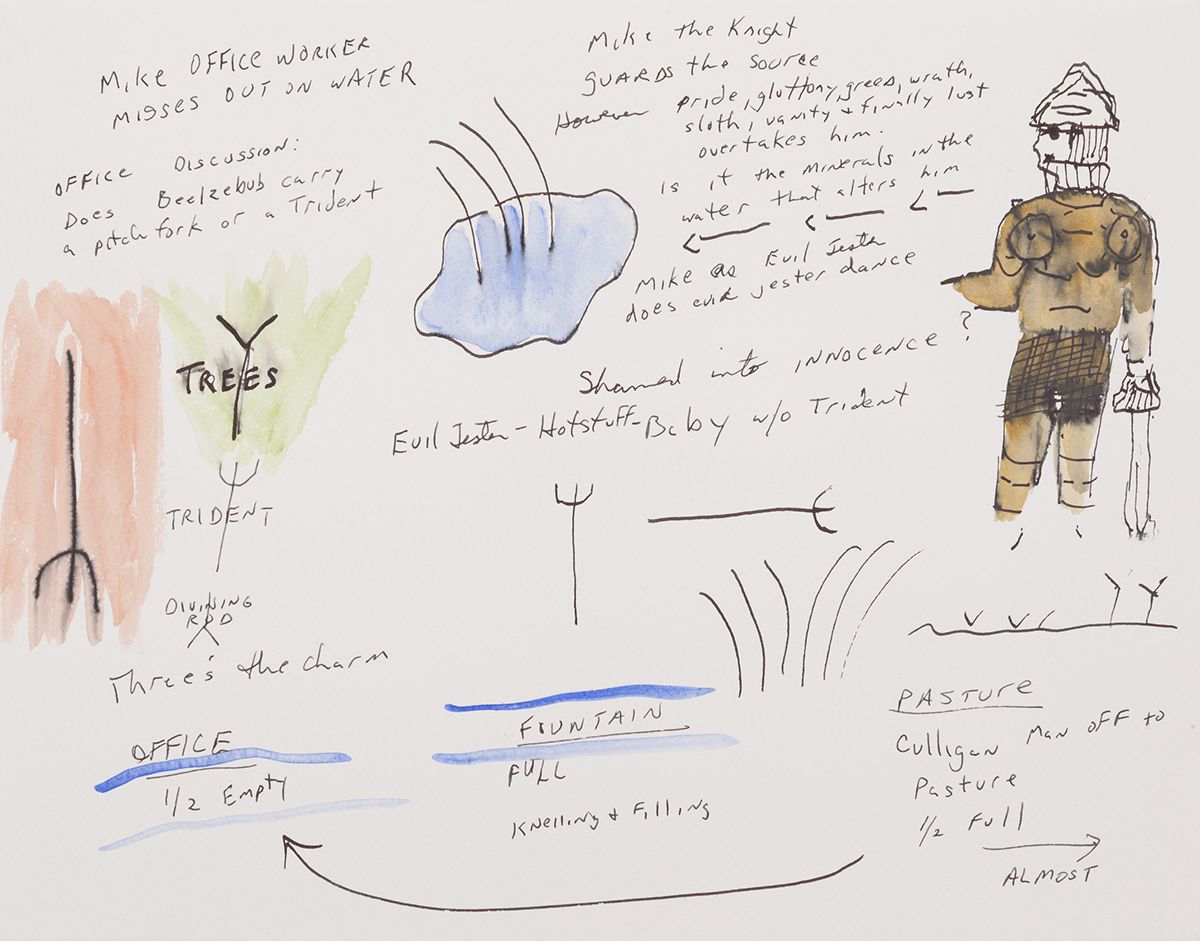 Mike OFFICE WORKER
MISSES OUT ON WATER
OFFICE Discussion:
Does Beelzebub carry
a pitch fork or a Trident
Mike the Knight
GUARDS the Source
However pride, gluttony, greed, wrath,
sloth, vanity & finally lust
overtakes him.
Is it the minerals in the
water that alters him
Mike as Evil Jester
does evil jester dance
Shamed into INNOCENCE ?
Evil Jester - Hotstuff - Baby w/o Trident
TREES
TRIDENT
DIVINING
ROD
Three's the charm
OFFICE
1/2 Empty
FOUNTAIN
FULL
Knelling & Filling
PASTURE
Culligan Man off to
Pasture
1/2 Full
ALMOST